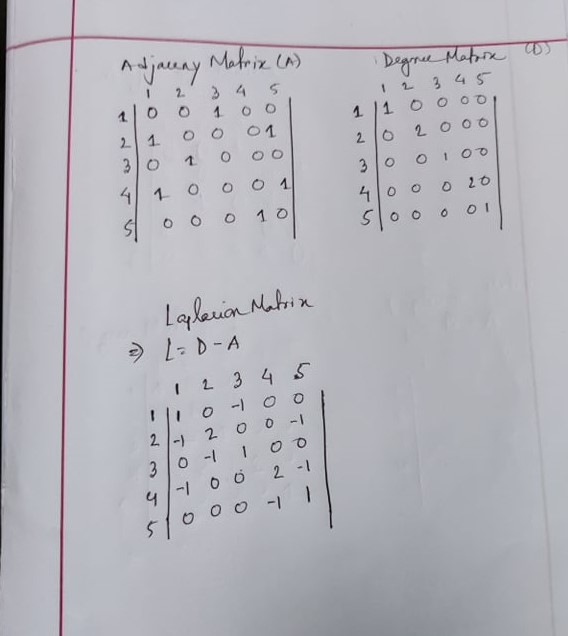 Adjaceny Matrix (A)
1 2 3 4 5
1 0 0 1 0 0
2 1 0 0 0 1
3 0 1 0 0 0
4 1 0 0 0 1
5 0 0 0 1 0
Degree Matrix (D)
1 2 3 4 5
1 1 0 0 0 0
2 0 2 0 0 0
3 0 0 1 0 0
4 0 0 0 2 0
5 0 0 0 0 1
Laplacian Matrix
⇒ L = D - A
1 2 3 4 5
1 1 0 -1 0 0
2 -1 2 0 0 -1
3 0 -1 1 0 0
4 -1 0 0 2 -1
5 0 0 0 -1 1